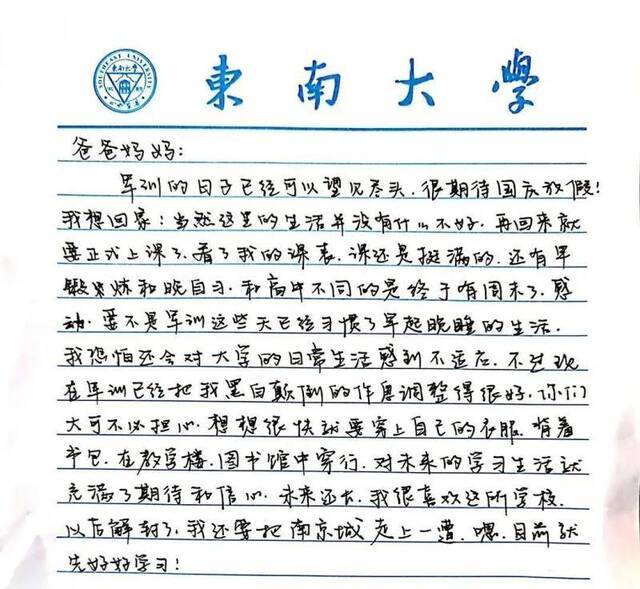 東南大學
SOUTHEAST UNIVERSITY
東南大學
爸爸妈妈：
军训的日子已经可以望见尽头，很期待国庆放假！
我想回家！当然这里的生活并没有什么不好，再回来就
要正式上课了，看了我的课表，课还是挺满的，还有早
锻炼和晚自习，和高中不同的是终于有周末了，感
动，要不是军训这些天已经习惯了早起晚睡的生活，
我恐怕还会对大学的日常生活感到不适应，不过现
在军训已经把我黑白颠倒的作息调整得很好，你们
大可不必担心，想想很快就要穿上自己的衣服，背着
书包，在教学楼，图书馆中穿行，对未来的学习生活就
充满了期待和信心，未来还长，我很喜欢这所学校，
以后解封了，我还要把南京城走上一遭，嗯，目前就
先好好学习！